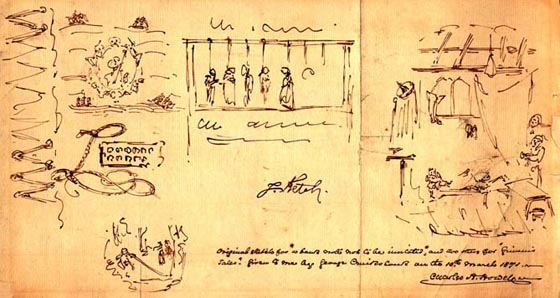 J. Ketch.
Original sketch for "a bank note not to be imitated", and an other for "Grimm's
Tales". Given to me by George Cruikshank on the 10th March 1871.
Charles A. Howell